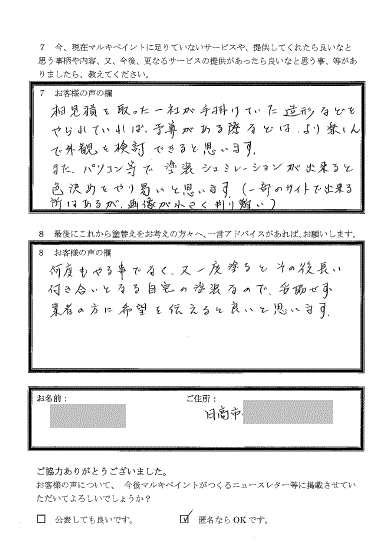 7 今、現在マルキペイントに足りていないサービスや、提供してくれたら良いなと
思う事柄や内容、又、今後、更なるサービスの提供があったら良いなと思う事、等があ
りましたら、教えてください。
7 お客様の声の欄
相見積を取った一社が手掛けていた造形などを
やられていれば、予算がある際などは、より楽しん
で外観を検討できると思います。
また、パソコン等で塗装シュミレーションが出来ると
色決めをやり易いと思います。(一部のサイトで出来る
所はあるが、画像が小さく判り難い)
8 最後にこれから塗替えをお考えの方々へ、一言アドバイスがあれば、お願いします。
8 お客様の声の欄
何度もやる事でなく、又一度塗るとその後長い
付き合いとなる自宅の塗装なので、妥協せず
業者の方に希望を伝えると良いと思います。
お名前: ご住所:
日高市
ご協力ありがとうございました。
お客様の声について、今後マルキペイントがつくるニュースレター等に掲載させてい
ただいてよろしいでしょうか?
☐ 公表しても良いです。 ☑ 匿名ならOKです。